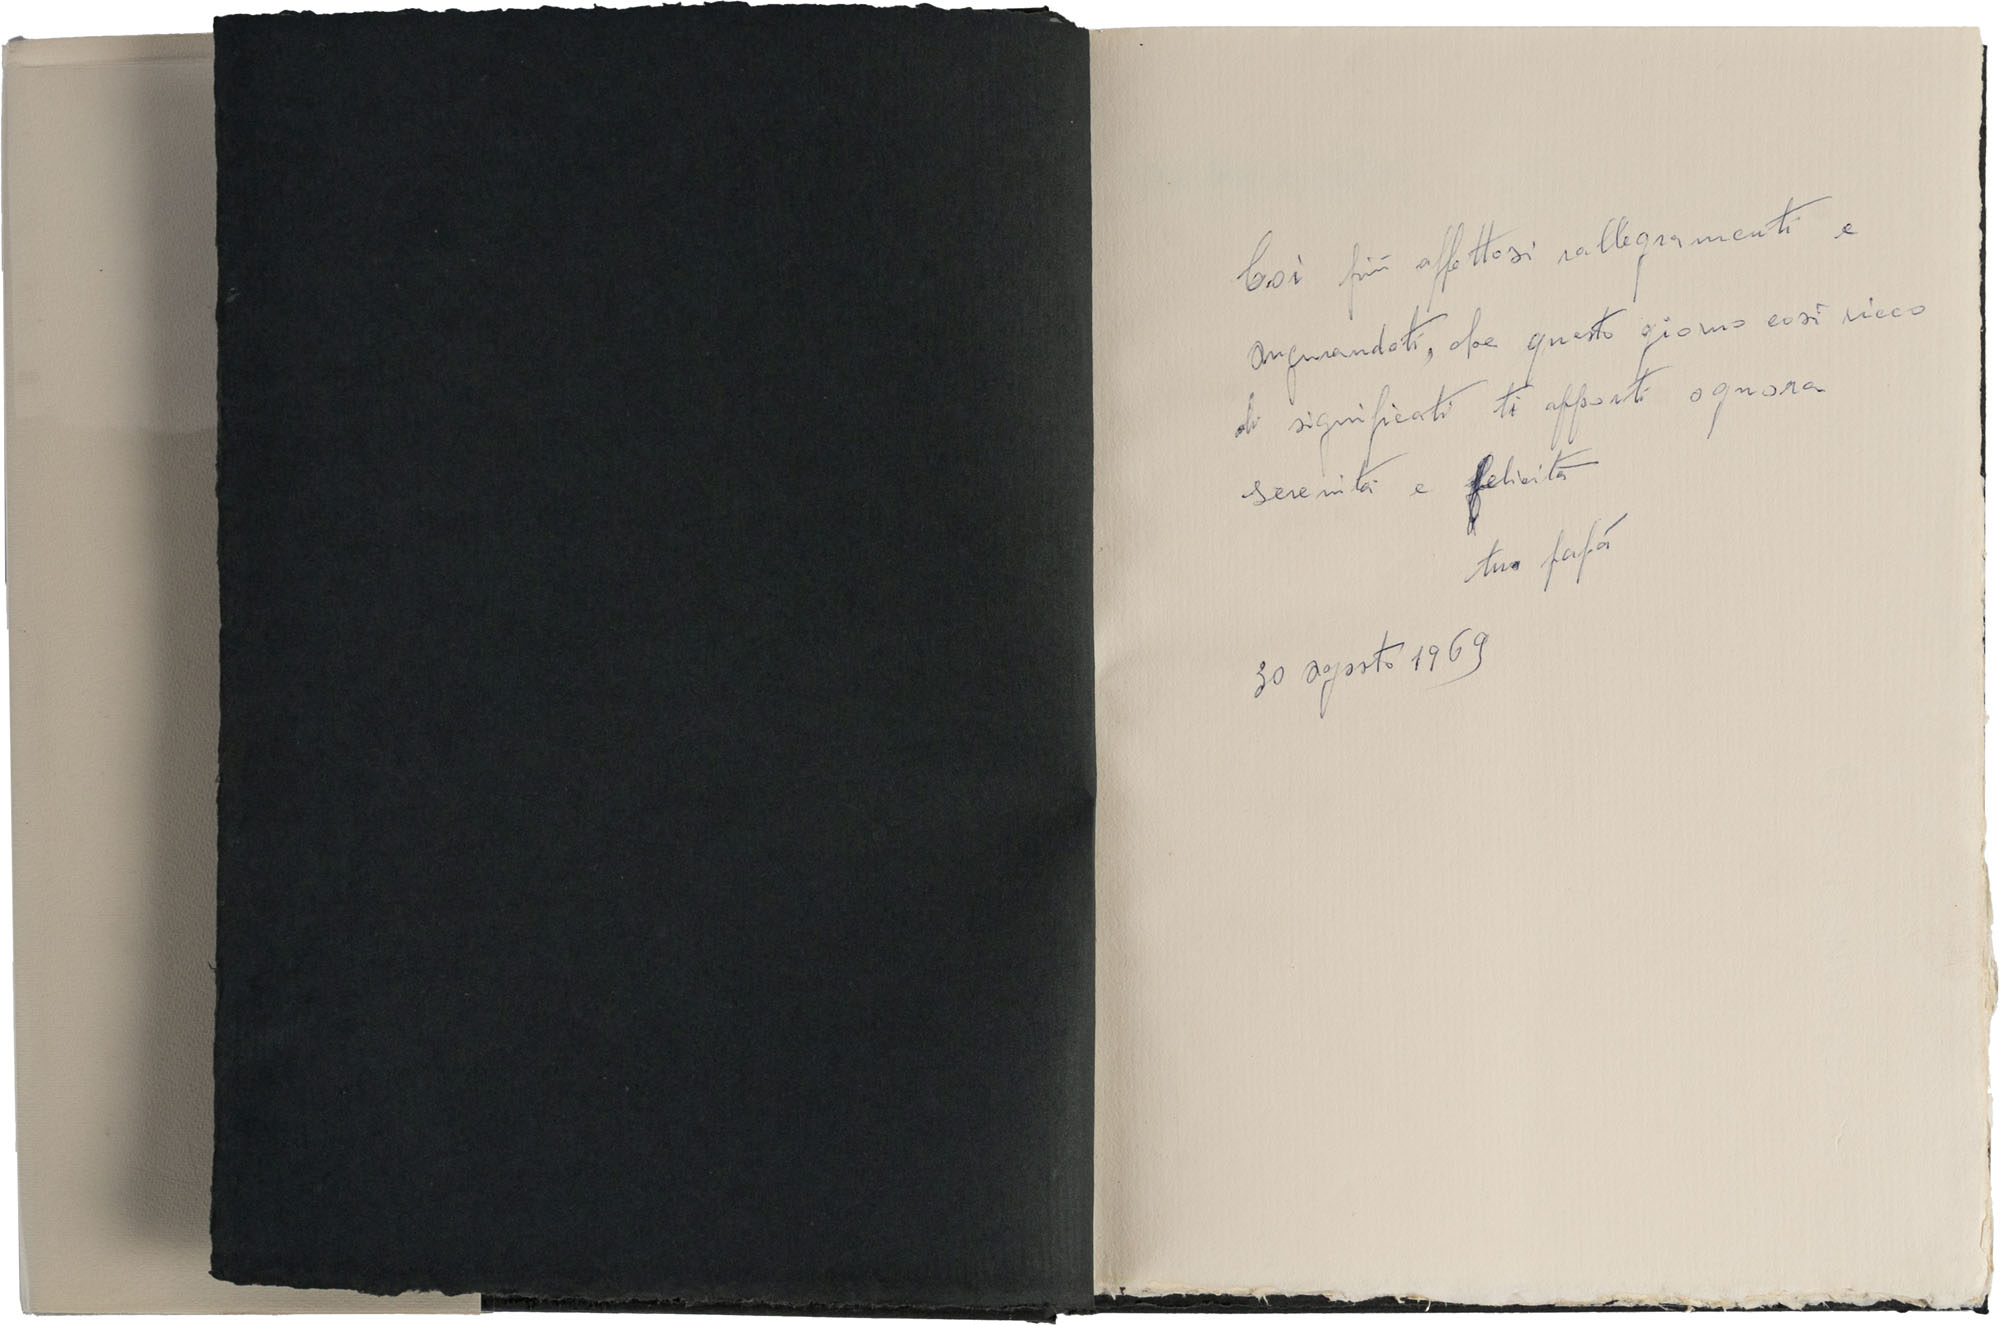 Coi più affettosi rallegramenti e
augurandoti, che questo giorno così ricco
di significati ti apporti ognora
serenità e felicità
tuo papà
30 agosto 1969